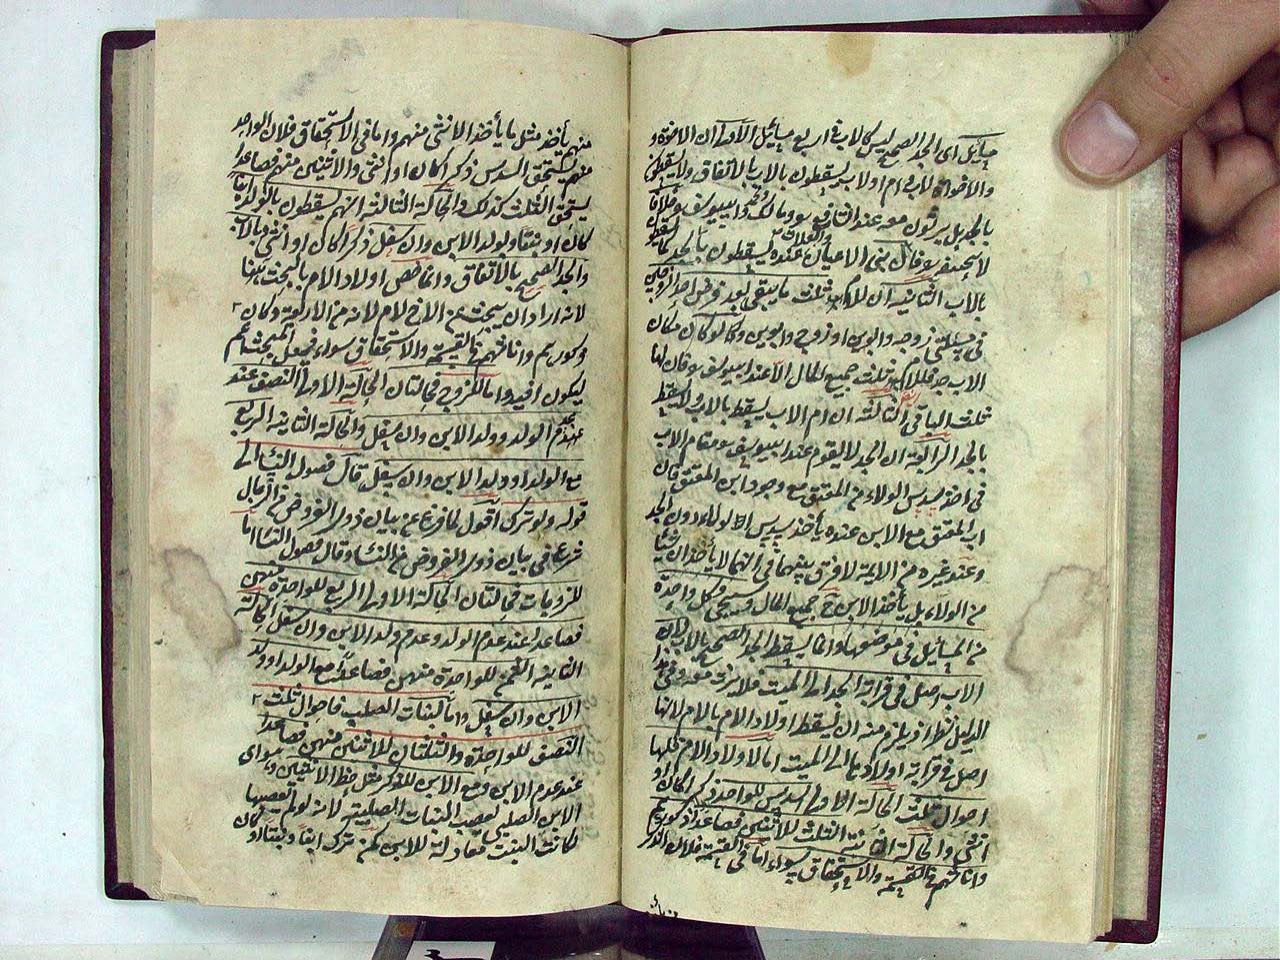 مسائل اى الجد الصحيح ليس كالاب فى اربع مسائل الاولى ان الاخوة و
والاخوات لاب وام او لاب يسقطون بالاب بالاتفاق ولا يسقطون
بالجد بل يرثون معه عند الشافعى ومالك وابى يوسف ومحمد خلافا
لابى حنيفة فان بنى الاعيان والعلات عنده يسقطون بالجد كما يسقطون
بالاب الثانية ان للام ثلث ما يبقى بعد فرض احد الزوجين
فى مسئلتى زوجة وابوين او زوج وابوين ولو كان مكان
الاب جد فللام ثلث جميع المال الا عند ابى يوسف فان لها
ثلث الباقى الثالثة ان ام الاب يسقط بالاب ولا يسقط
بالجد الرابعة ان الجد لا يقوم عند ابى يوسف مقام الاب
فى اخذ سدس الولاء من المعتق مع وجود ابن المعتق فان
اب المعتق مع الابن عنده يأخذ سدس الولاء دون الجد
وعند غيره من الايمة لا فرق بينهما فى انهما لا يأخذان شيئا
من الولاء بل يأخذ الابن جميع المال وسيجئ كل واحدة
من المسائل فى موضعها وانما يسقط الجد الصحيح بالاب لان
الاب اصل فى قرابة الجد الى الميت فلا يرث معه وفى هذا
الدليل نظر اذ يلزم منه ان يسقط اولاد الام بالام لانها
اصل فى قرابة اولادها الى الميت اما لاولاد الام فلها
احوال ثلث الحالة الاولى السدس للواحد ذكرا كان او
انثى والحالة الثانية الثلث للاثنين فصاعدا ذكورهم
واناثهم فى القسمة والاستحقاق سواء اما فى القسمة فلان الذكر
منهم يأخذ مثل ما يأخذ الانثى منهم واما فى الاستحقاق فلان الواحد
منهم يستحق السدس ذكرا كان او انثى والاثنين منهم فصاعدا
يستحق الثلث كذلك والحالة الثالثة انهم يسقطون بالولد
كان او بنتا وبولد الابن وان سفل ذكرا كان او انثى وبالاب
والجد الصحيح بالاتفاق وانما خص اولاد الام بالبحث ههنا
لانه اراد ان يبحث عن الاخ لام لانه من الاربعة وكان
ذكورهم واناثهم فى القسمة والاستحقاق سواء فجعل البحث اعم
ليكون افيد واما للزوج فحالتان الحالة الاولى النصف عند
عدم الولد وولد الابن وان سفل والحالة الثانية الربع
مع الولد او ولد الابن وان سفل قال فصول النساء الى
قوله ولو ترك اقول لما فرغ عن بيان ذوى الفروض من الرجال
شرع فى بيان ذوى الفروض من النساء وقال فصول النساء اما
للزوجات فحالتان الحالة الاولى الربع للواحدة منهن
فصاعدا عند عدم الولد وعدم ولد الابن وان سفل الحالة
الثانية الثمن للواحدة منهن فصاعدا مع الولد او ولد
الابن وان سفل واما لبنات الصلب فاحوال ثلث
النصف للواحدة والثلثان للاثنتين منهن فصاعدا
عند عدم الابن ومع الابن للذكر مثل حظ الانثيين
الابن الصلبى يعصب البنات الصلبية لانه لو لم يعصبها
لكانت البنت معادلة للابن كمن ترك ابنا وبنتا